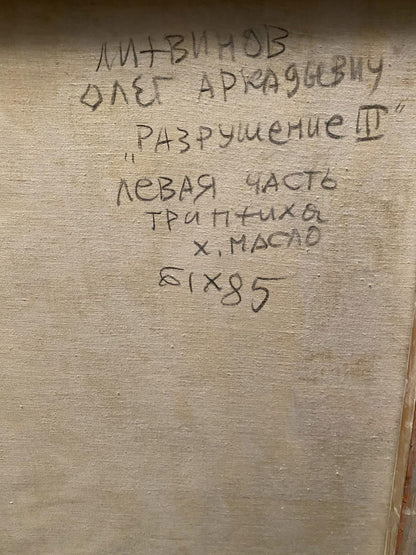 ЛИТВИНОВ
ОЛЕГ АРКАДЬЕВИЧ
„РАЗРУШЕНИЕ III"
ЛЕВАЯ ЧАСТЬ
ТРИПТИХА
Х, МАСЛО
61X85